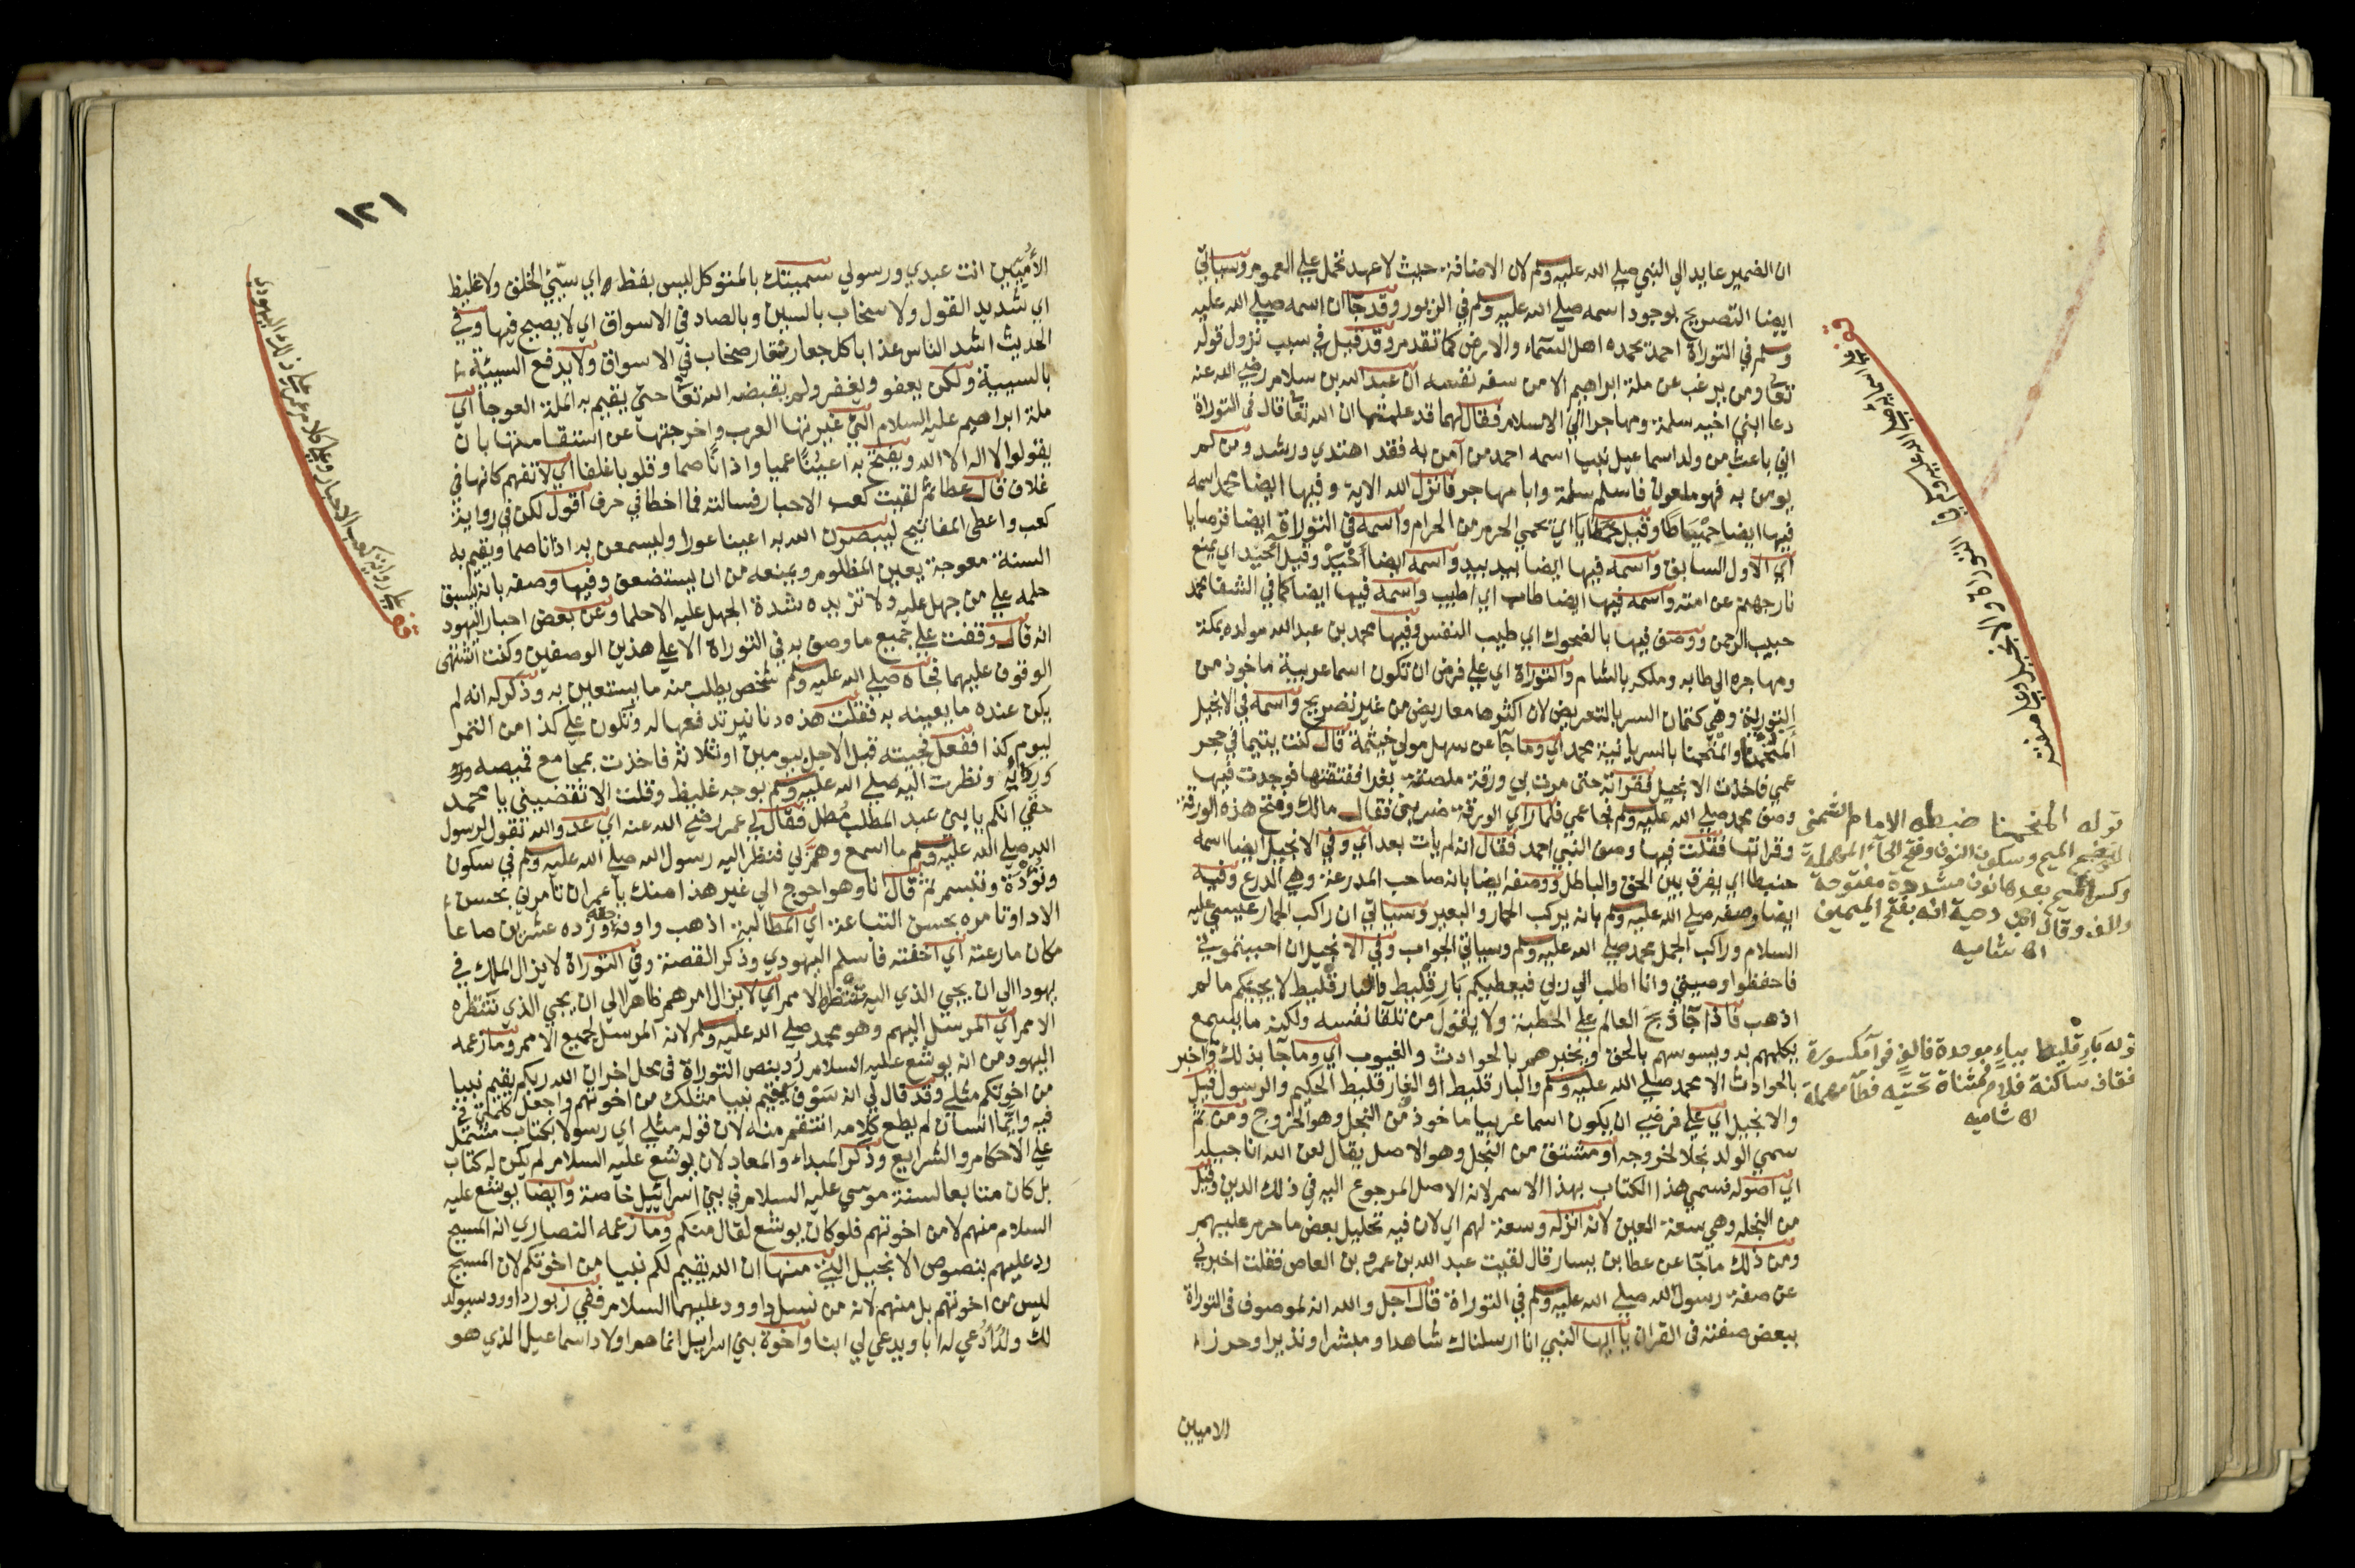 ان الضمير عايد الي النبي صلي الله عليه وسلم لان الاضافة حيث لا عهد تحمل علي العموم وسياتي
ايضا التصريح بوجود اسمه صلي الله عليه وسلم في الزبور وقد جاان اسمه صلي الله عليه
وسلم في التوراة احمد يحمده اهل السماء والارض كما تقدم وقد قيل في سبب نزول قوله
تعا ومن يرغب عن ملة ابراهيم الا من سفه نفسه ان عبد الله بن سلام رضي الله عنه
دعا ابني اخيه سلمة ومهاجرا الي الاسلام فقال لهما قد علمتما ان الله تعا قال في التوراة
اني باعث من ولد اسماعيل نبيا اسمه احمد من آمن به فقد اهتدي ورشد ومن لم
يومن به فهو ملعون فاسلم سلمة وابا مهاجر فانزل الله الاية وفيها ايضا محمد اسمه
فيها ايضا حمياطا وقيل حمطايا اي يحمي الحرم من الحرام واسمه في التوراة ايضا قدمايا
اي الاول السابق واسمه فيها ايضا بيد بيد واسمه ايضا احيد وقيل احيد اي يمنع
نار جهنم عن امته واسمه فيها ايضا طاب اي طيب واسمه فيها ايضا كما في الشفا محمد
حبيب الرحمن ووصف فيها بالضحوك اي طيب النفس وفيها محمد بن عبد الله مولده بمكة
ومهاجره الي طابه وملكه بالشام والتوراة اي علي فرض ان تكون اسما عربية ماخوذ من
التورية وهي كتمان السر بالتعريض لان اكثرها معاريض من غير تصريح واسمه في الانجيل
المنحمنا والمنحمنا بالسريانية محمد اي وما جا عن سهل مولي خيثمة قال كنت يتيما في حجر
عمي فاخذت الانجيل فقراته حتى مرت بي ورقة ملصقة بغرا ففتقتها فوجدت فيها
وصف محمد صلي الله عليه وسلم فجا عمي فلما راي الورقة ضربني فقال مالك وفتح هذه الورقة
وقراتها فقلت فيها وصف النبي احمد فقال انه لم يات بعد اي وفي الانجيل ايضا اسمه
حنبطا اي يفرق بين الحق والباطل ووصفه ايضا بانه صاحب المدرعة وهي الدرع وفيه
ايضا وصفه صلي الله عليه وسلم بانه يركب الحمار والبعير وسياتي ان راكب الحمار عيسي عليه
السلام وراكب الجمل محمد صلي الله عليه وسلم وسياتي الجواب وفي الانجيل ان احببتموني
فاحفظوا وصيتي وانا اطلب الي ربي فيعطيكم بار قليط والبار قليط لا يجيكم ما لم
اذهب فاذا جا وبخ العالم علي الخطية ولا يقول من تلقا نفسه ولكنه ما يسمع
يكلمهم به ويسوسهم بالحق ويخبرهم بالحوادث والغيوب اي وما جا بذلك واخبر
بالحوادث الا محمد صلي الله عليه وسلم والبار قليط او الفار قليط الحكيم والرسول قيل
والانجيل اي علي فرضي ان يكون اسما عربيا ماخوذ من النجل وهو الخروج ومن ثم
سمي الولد نجلا لخروجه او مشتق من النجل وهو الاصل يقال لعن الله اناجيله
اي اصوله فسمي هذا الكتاب بهذا الاسم لانه الاصل المرجوع اليه في ذلك الدين وقيل
من النجله وهي سعة العين لانه انزله وسعة لهم اي لان فيه تحليل بعض ما حرم عليهم
ومن ذلك ما جا عن عطا بن يسار قال لقيت عبد الله بن عمرو بن العاص فقلت اخبرني
عن صفة رسول الله صلي الله عليه وسلم في التوراة قال اجل والله انه لموصوف في التوراة
ببعض صفته في القران يا ايها النبي انا ارسلناك شاهدا ومبشرا ونذيرا وحرزا
الاميين
قف
علي اسمايه صلي الله عليه وسلم في التوراة والانجيل وعلي صفته
قوله المنحمنا ضبطه الامام الشمني
بضم الميم وسكون النون وفتح الحاء المهملة
وكسر الميم بعدها نون مشددة مفتوحة
والف وقال ابن دحية انه بفتح الميمين
اه شاميه
قوله بار قليط بباء موحدة فالف فراء مكسورة
فقاف ساكنة فلام فمثناة تحتية فطاء مهملة
اه شاميه
١٢١
الأميين انت عبدي ورسولي سميتك بالمتوكل ليس بفظ اي سيئ الخلق ولا غليظ
اي شديد القول ولا سخاب بالسين وبالصاد في الاسواق اي لا يصيح فيها وفي
الحديث اشد الناس عذابا كل جعار نقار صخاب في الاسواق ولا يدفع السيئة
بالسيية ولكن يعفو ويغفر ولم يقبضه الله تعا حتي يقيم به الملة العوجا اي
ملة ابراهيم عليه السلام التي غيرتها العرب واخرجتها عن استقامتها بان
يقولوا لا اله الا الله ويفتح به اعينا عميا واذانا صما وقلوبا غلفا اي لا تفهم كانها في
غلاف قال عطا ثم لقيت كعب الاحبار فسالته فما اخطا في حرف اقول لكن في رواية
كعب واعطي المفاتيح ليبصرن الله به اعينا عورا وليسمعن به اذانا صما ويقيم به
السنة معوجة يعين المظلوم ويمنعه من ان يستضعف وفيها وصفه بانه يسبق
حلمه علي من جهل عليه ولا تزيده شدة الجهل عليه الا حلما وعن بعض احبار اليهود
انه قال وقفت علي جميع ما وصف به في التوراة الا علي هذين الوصفين وكنت اشتهي
الوقوف عليهما فجاه صلي الله عليه وسلم شخص يطلب منه ما يستعين به وذكر له انه لم
يكن عنده ما يعينه به فقلت هذه دنانير تدفعها له وتكون علي كذا من التمر
ليوم كذا ففعل فجيته قبل الاجل بيومين او ثلاثة فاخذت بمجامع قميصه ورد
وردائه ونظرت اليه صلي الله عليه وسلم بوجه غليظ وقلت الا تقضيني يا محمد
حقي انكم يا بني عبد المطلب مطل فقال لي عمر رضي الله عنه اي عدو الله تقول لرسول
الله صلي الله عليه وسلم ما اسمع وهم بي فنظر اليه رسول الله صلي الله عليه وسلم في سكون
وتؤدة وتبسم ثم قال انا وهو احوج الي غير هذا منك يا عمر ان تامرني بحسن
الادا وتامره بحسن التباعة اي المطالبة اذهب واوفه حقه وزده عشرين صاعا
مكان ما رعته اي اخفته فاسلم اليهودي وذكر القصة وفي التوراة لا يزال الملك في
يهودا الي ان يجي الذي اليه تنتظر الامم اي لا يزال امرهم ظاهرا الي ان يجي الذي تنتظره
الامم اي المرسل اليهم وهو محمد صلي الله عليه وسلم لانه المرسل لجميع الامم وما زعمه
اليهود من انه يوشع عليه السلام رد بنص التوراة في محل اخر ان الله ربكم يقيم نبيا
من اخوتكم مثلي وقد قال لي انه سوف يقيم نبيا مثلك من اخوتهم واجعل كلمتي في
فيه وايما انسان لم يطع كلامه انتقم منه لان قوله مثلي اي رسولا بكتاب مشتمل
علي الاحكام والشرايع وذكر المبداء والمعاد لان يوشع عليه السلام لم يكن له كتاب
بل كان متابعا لسنة موسي عليه السلام في بني اسرائيل خاصة وايضا يوشع عليه
السلام منهم لا من اخوتهم فلو كان يوشع لقال منكم وما زعمه النصاري انه المسيح
رد عليهم بنصوص الانجيل التي منها ان الله يقيم لكم نبيا من اخوتكم لان المسيح
ليس من اخوتهم بل منهم لانه من نسل داوود عليهما السلام ففي زبور داوود سيولد
لك ولد ادعي له ابا ويدعي لي ابنا واخوة بني اسرايل انما هم اولاد اسماعيل الذي هو
قف
علي رواية كعب الاحبار وعلي كلام عمر علي ذلك اليهودي